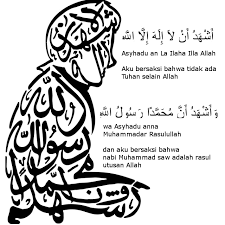 أَشْهَدُ أَنْ لاَ إِلَهَ إِلاَّ اللَّهُ
Asyhadu an La Ilaha Illa Allah
aku bersaksi bahwa tidak ada
Tuhan selain Allah
وَ أَشْهَدُ أَنَّ مُحَمَّدًا رَسُولُ اللَّهِ
wa Asyhadu anna
Muhammadar Rasulullah
dan aku bersaksi bahwa
nabi Muhammad saw adalah rasul
utusan Allah